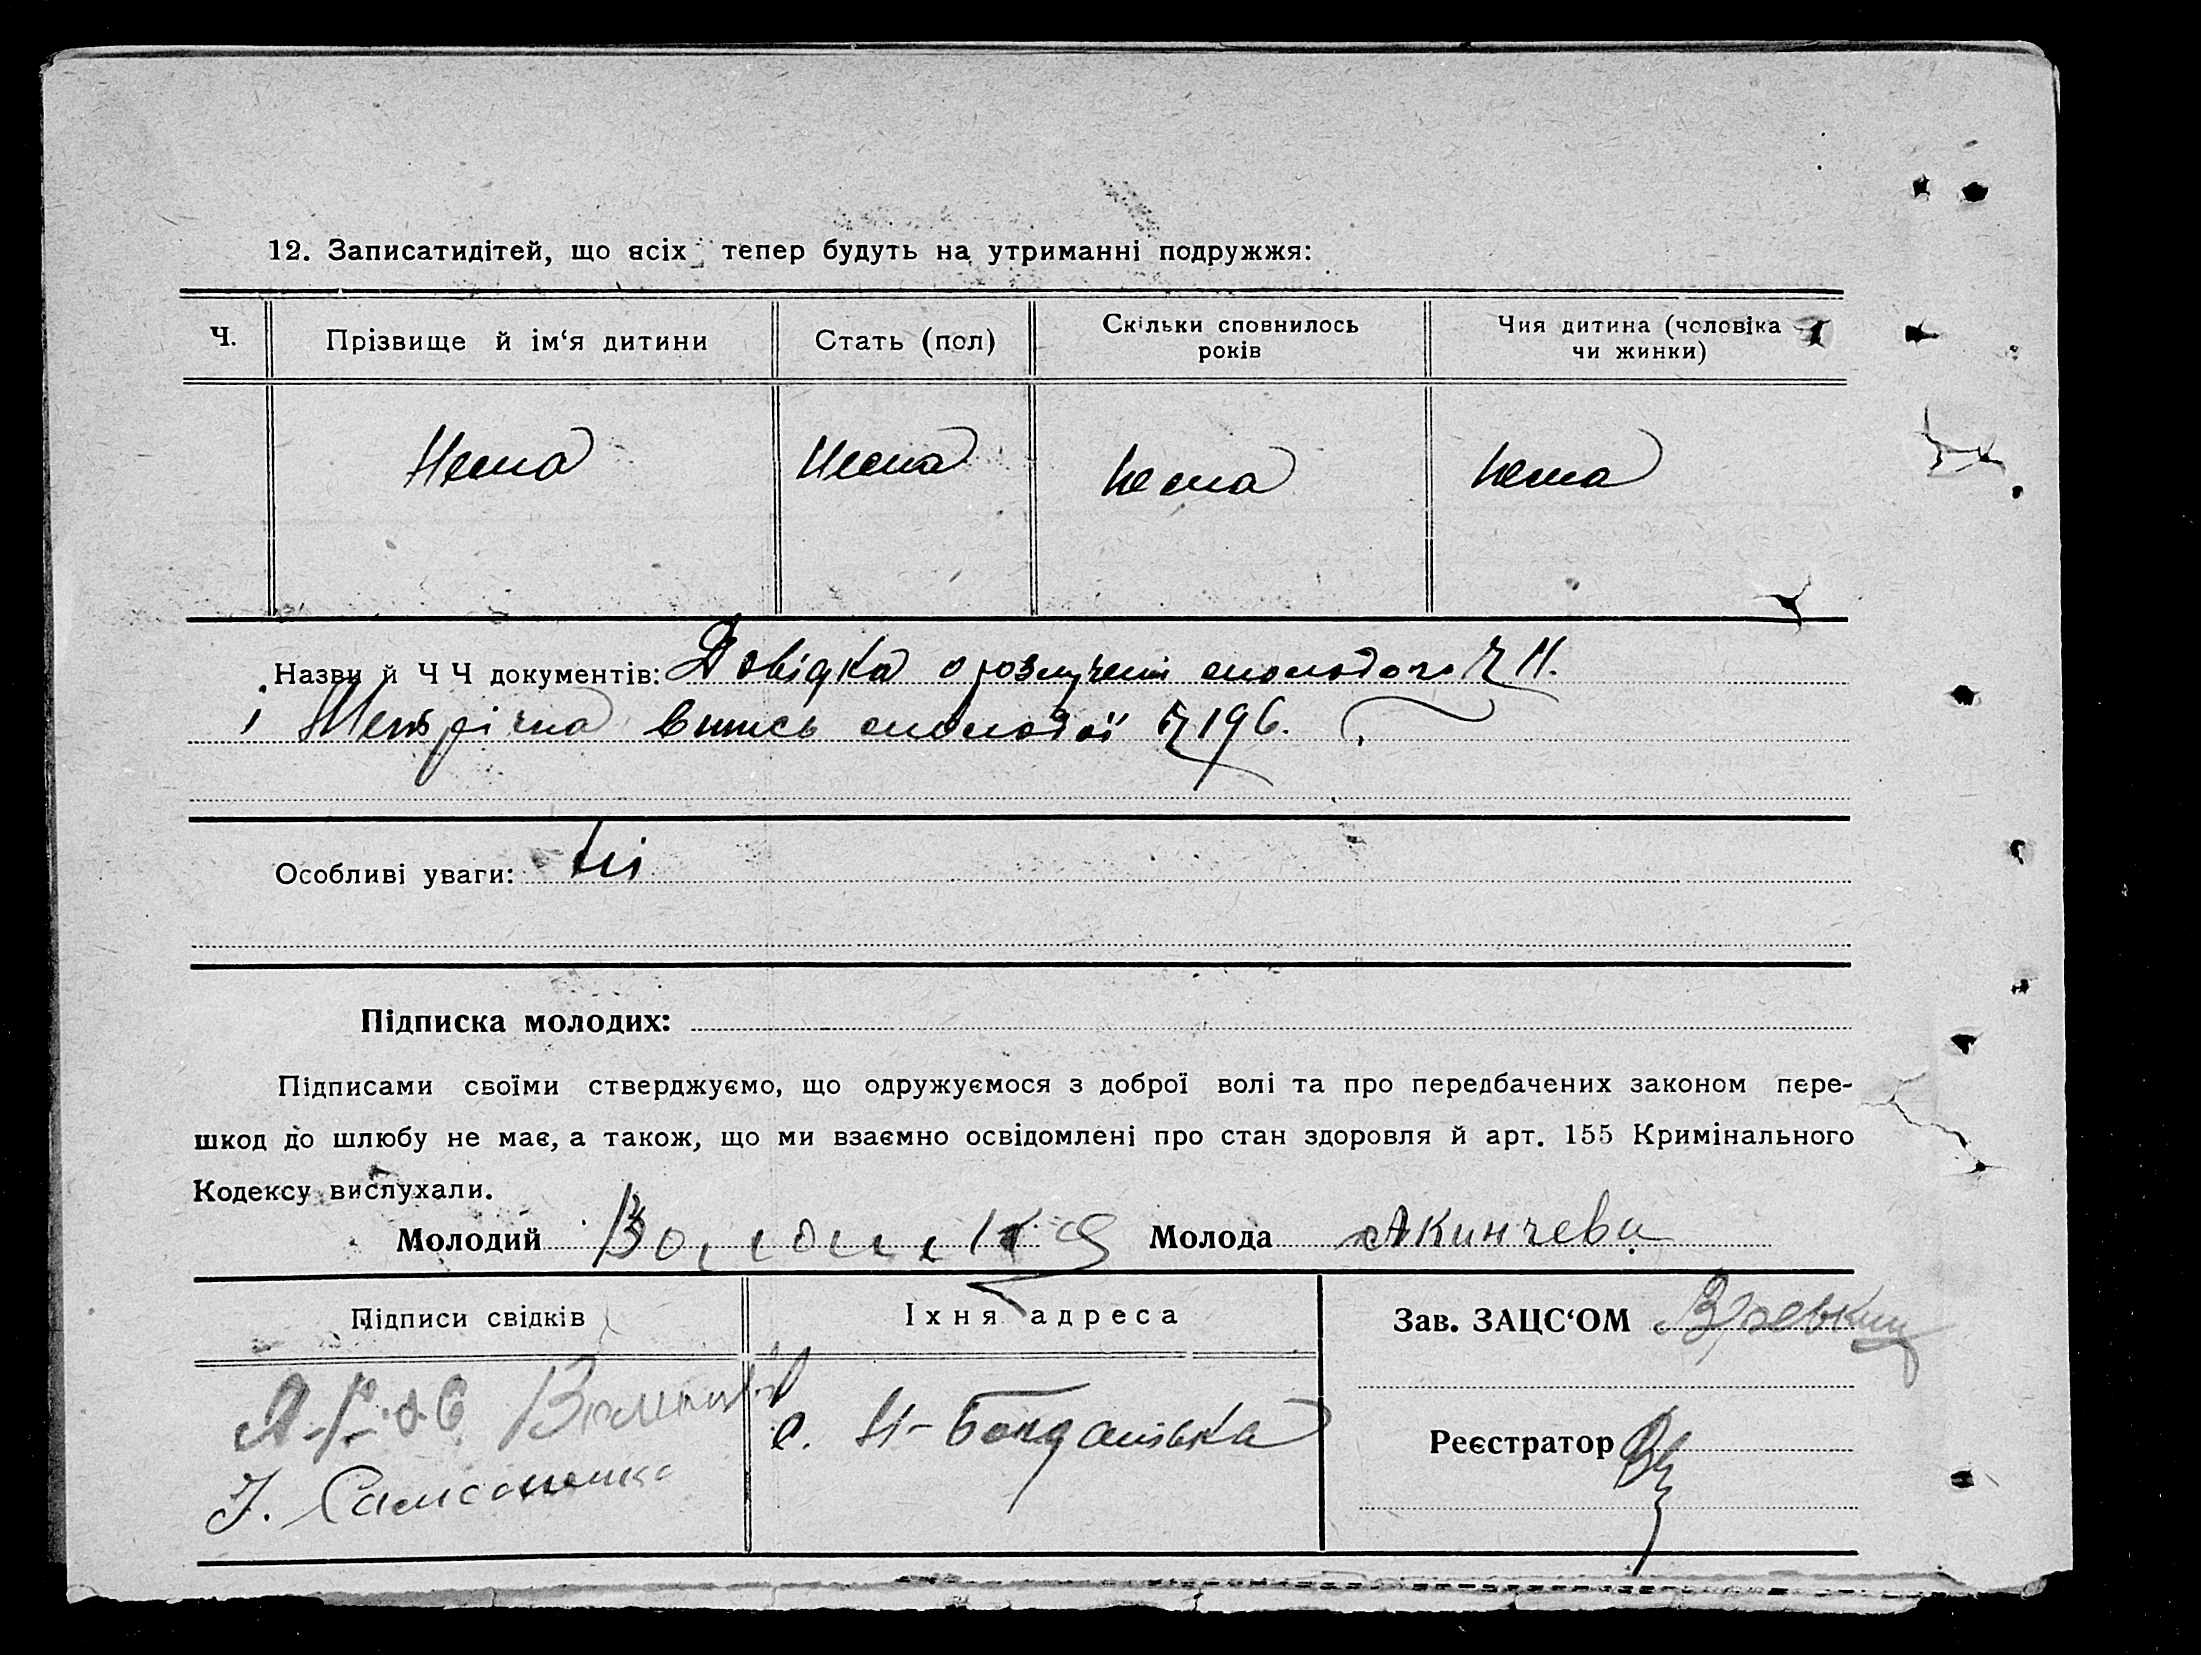 12. Записатидітей, що всіх тепер будуть на утриманні подружжя:
Ч.
Прізвище й ім‘я дитини
Стать (пол)
Скільки сповнилось
років
Чия дитина (чоловіка
чи жинки)
Нема
Нема
нема
нема
Назви й Ч Ч документів: Довідка о розлученні молодого Ч 11.
і Метрична впись молодої Ч 196.
Особливі уваги: ні
Підписка молодих:
Підписами своїми стверджуємо, що одружуємося з доброї волі та про передбачених законом пере-
шкод до шлюбу не має, а також, що ми взаємно освідомлені про стан здоровля й арт. 155 Кримінального
Кодексу вислухали.
Молодий
Молода Акинчева
Підписи свідків
Їхня адреса
Зав. ЗАЦС‘ОМ
с. Н-Богданівка
Реєстратор
І.